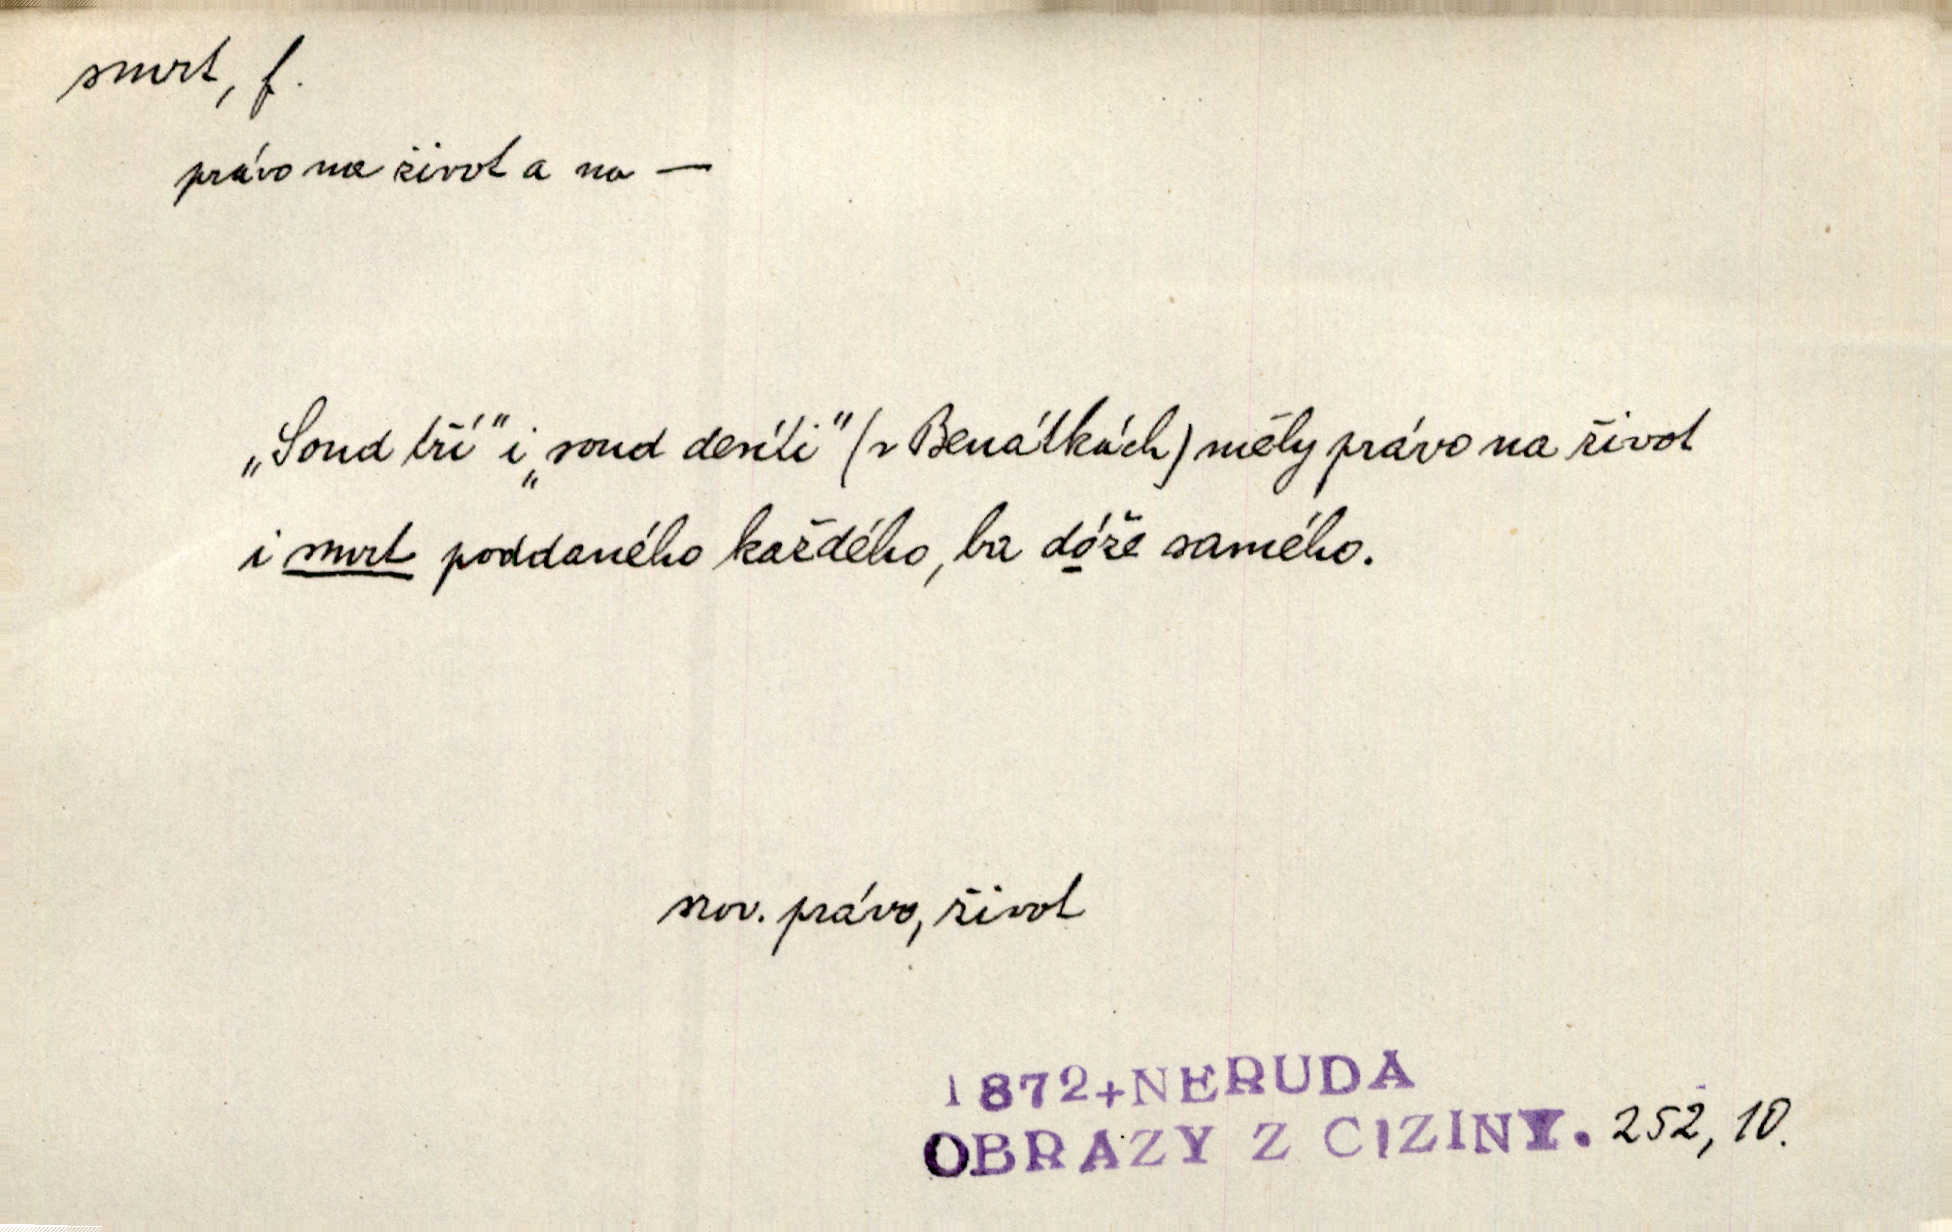 smrt, f.
právo na život a na —
„Soud tří" i „soud desíti" (v Benátkách) měly právo na život
i smrt poddaného každého, ba dóže samého.
srov. právo, život
1872+NERUDA
OBRAZY Z CIZINY. 252, 10.